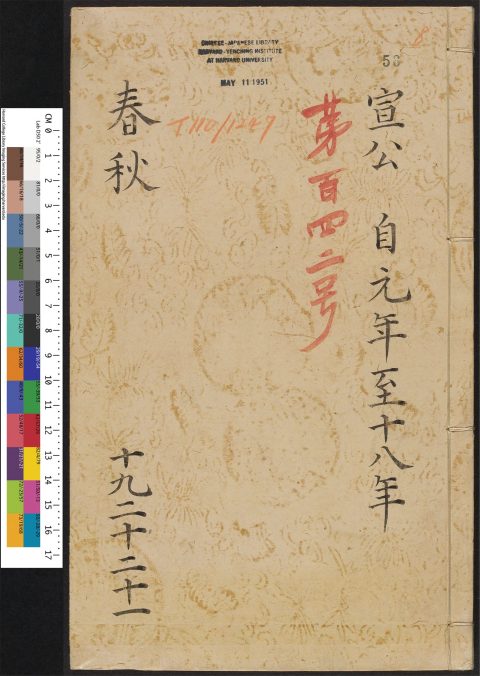 CHINESE-JAPANESE LIBRARY
HARVARD-YENCHING INSTITUTE
AT HARVARD UNIVERSITY
MAY 11 1951
8
宣公 自元年至十八年
第百四二号
T110/1247
春秋
十九二十二十一
CM 0 1 2 3 4 5 6 7 8 9 10 11 12 13 14 15 16 17